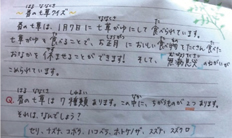 はる ななくさ
春の七草クイズ
はる ななくさ
春の七草は、1月7日に七草がゆにして食べられています。
七草がゆを食べることで、お正月においしい食べ物でたくさん食べた
おなかを休ませることができます! そして、無病息災のねがいが
こめられています。
Q. 春の七草は7種類あります。この中に、 が 2つあります。
それは、なんでしょう?
セリ、ナズナ、ゴギョウ、ハコベラ、ホトケノザ、スズナ、スズシロ